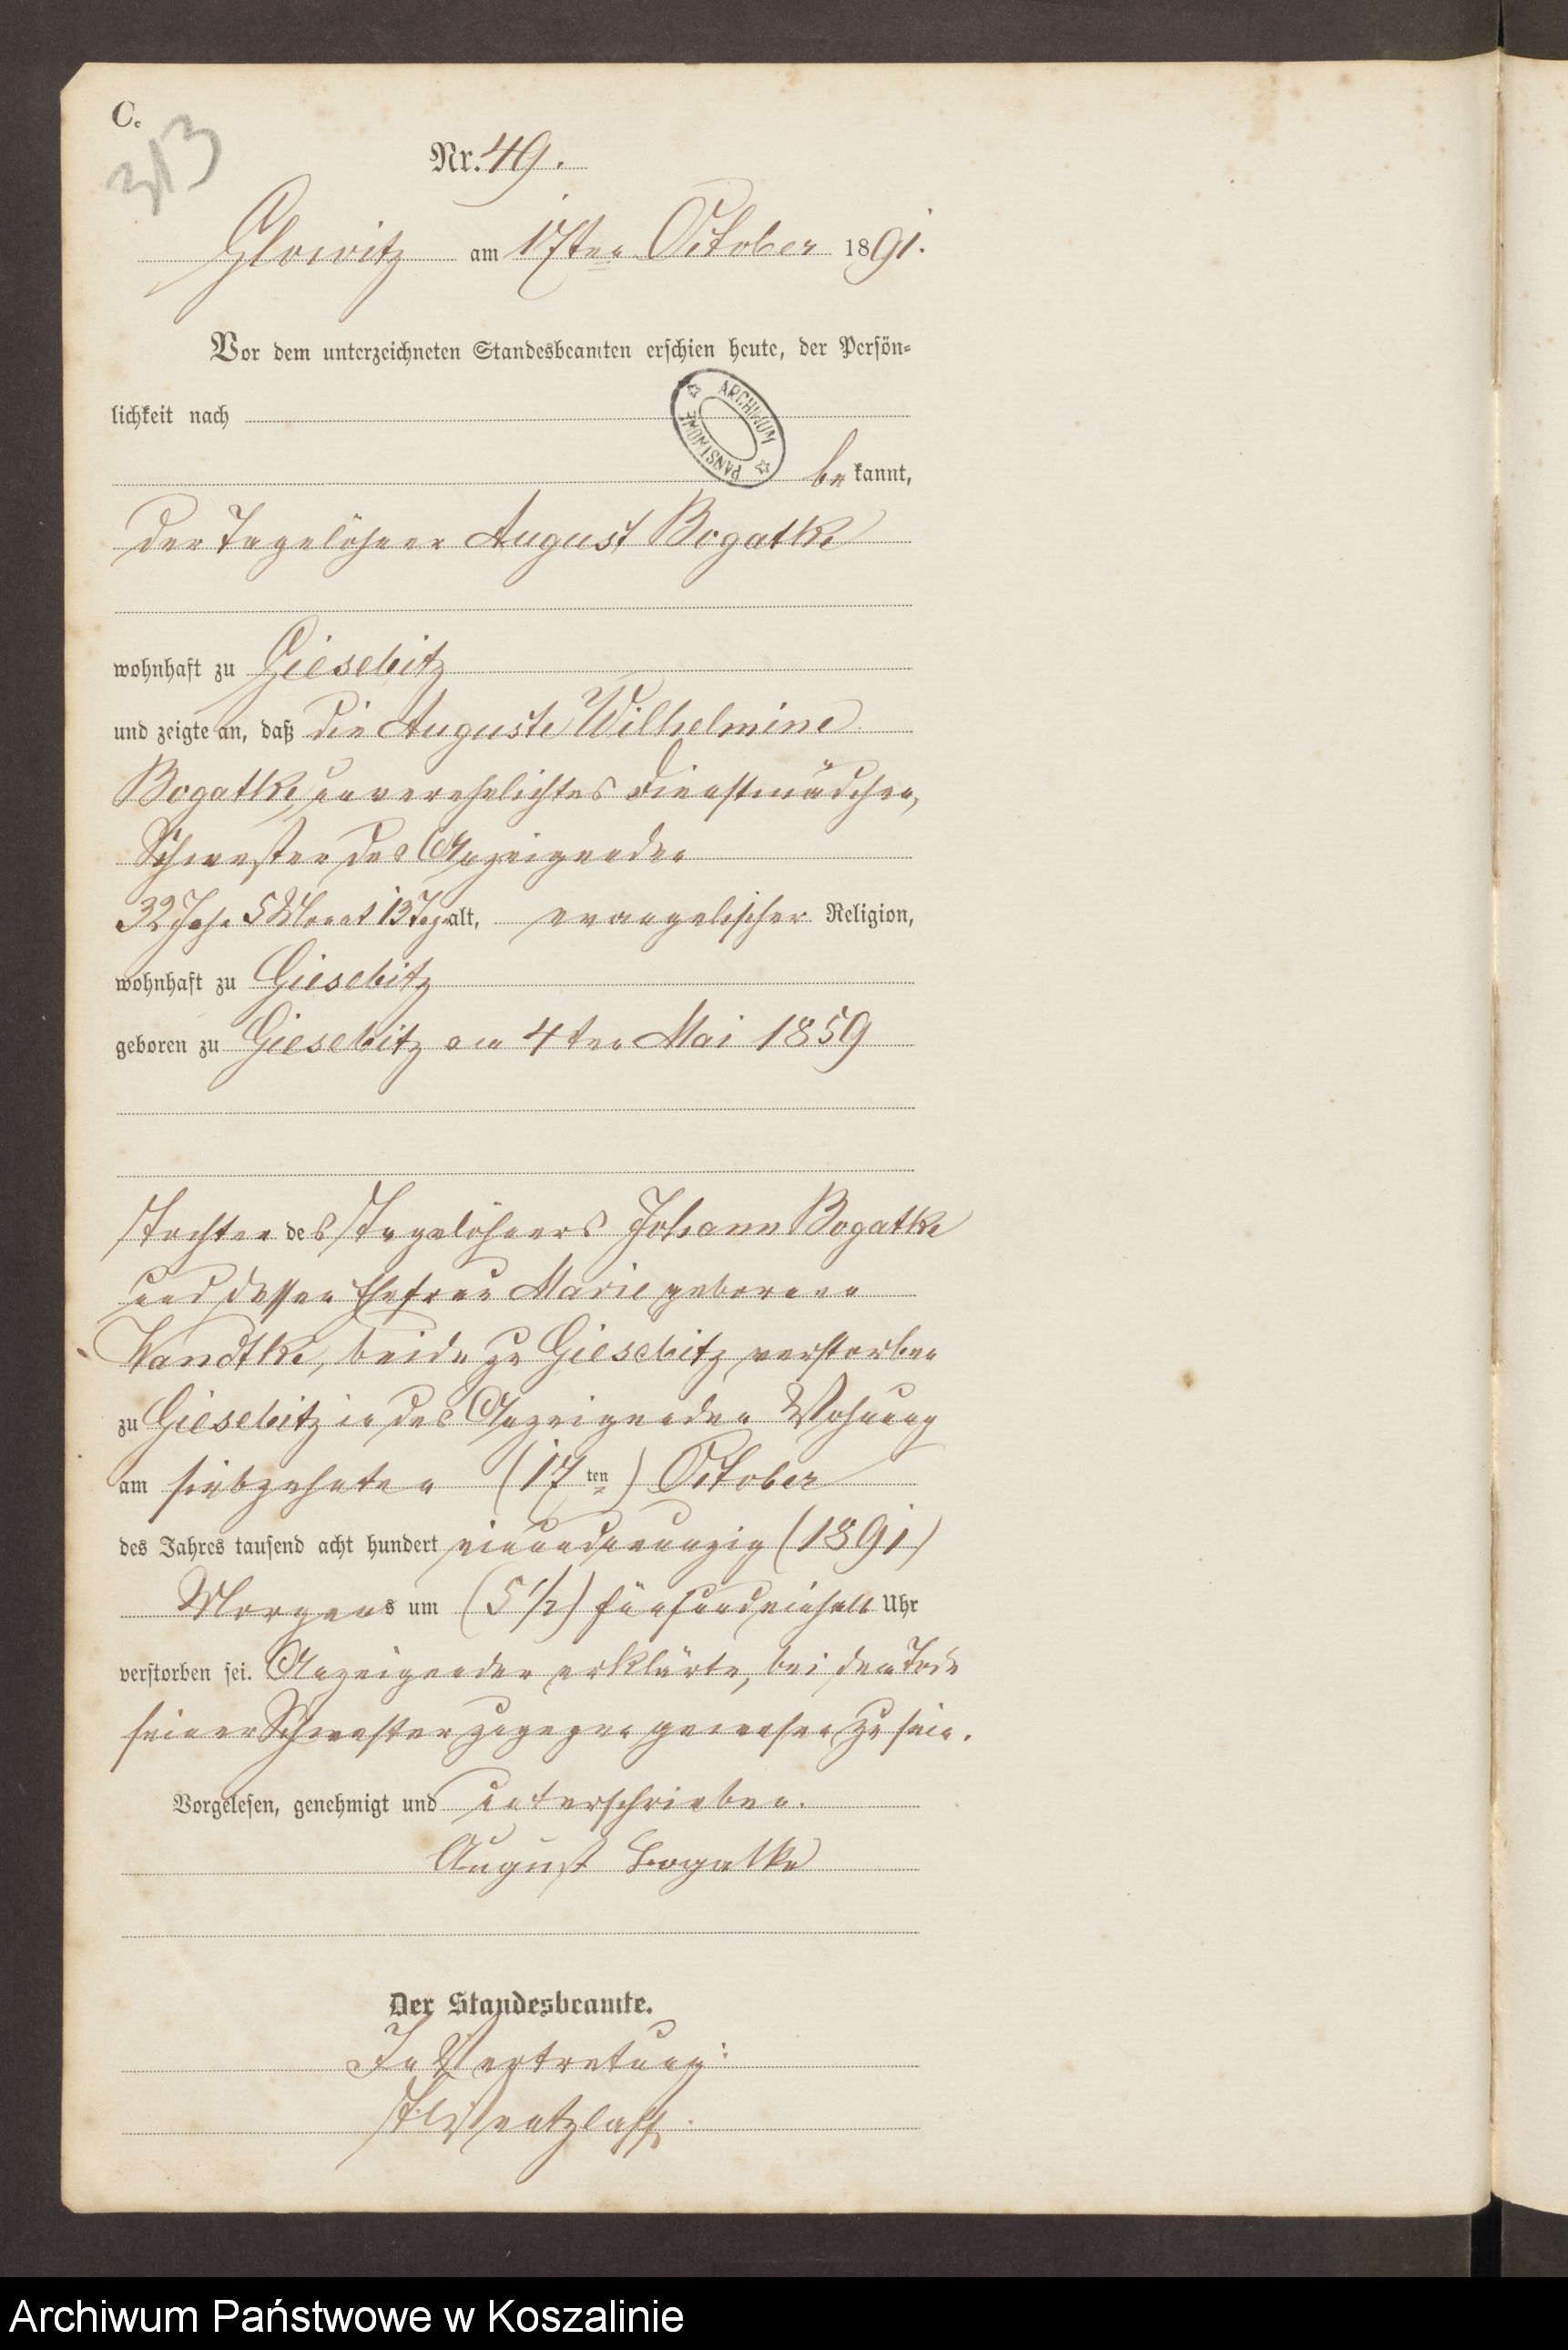 C.
313
Nr. 49.
Glowitz am 17ten October 1891.
Vor dem unterzeichneten Standesbeamten erschien heute, der Persön-
lichkeit nach
ARCHIWUM PAŃSTWOWE
bekannt,
der Tagelöhner August Bogatke
wohnhaft zu Giesebitz
und zeigte an, daß die Auguste Wilhelmine
Bogatke, unverehelichtes Dienstmädchen,
Schwester des Anzeigenden
32 Jahr 5 Monat 13 Tag alt, evangelischer Religion,
wohnhaft zu Giesebitz
geboren zu Giesebitz am 4ten Mai 1859
Tochter des Tagelöhners Johann Bogatke
und dessen Ehefrau Marie geborenen
Wandtke, beide zu Giesebitz verstorben
zu Giesebitz in des Anzeigenden Wohnung
am siebzehnten (17ten) October
des Jahres tausend acht hundert einundneunzig (1891)
Morgens um (5 1/2) fünfundeinhalb Uhr
verstorben sei. Anzeigender erklärte, bei dem Tode
seiner Schwester zugegen gewesen zu sein.
Vorgelesen, genehmigt und unterschrieben.
August Bogatke
Der Standesbeamte.
In Vertretung:
Wentzlaff.
Archiwum Państwowe w Koszalinie